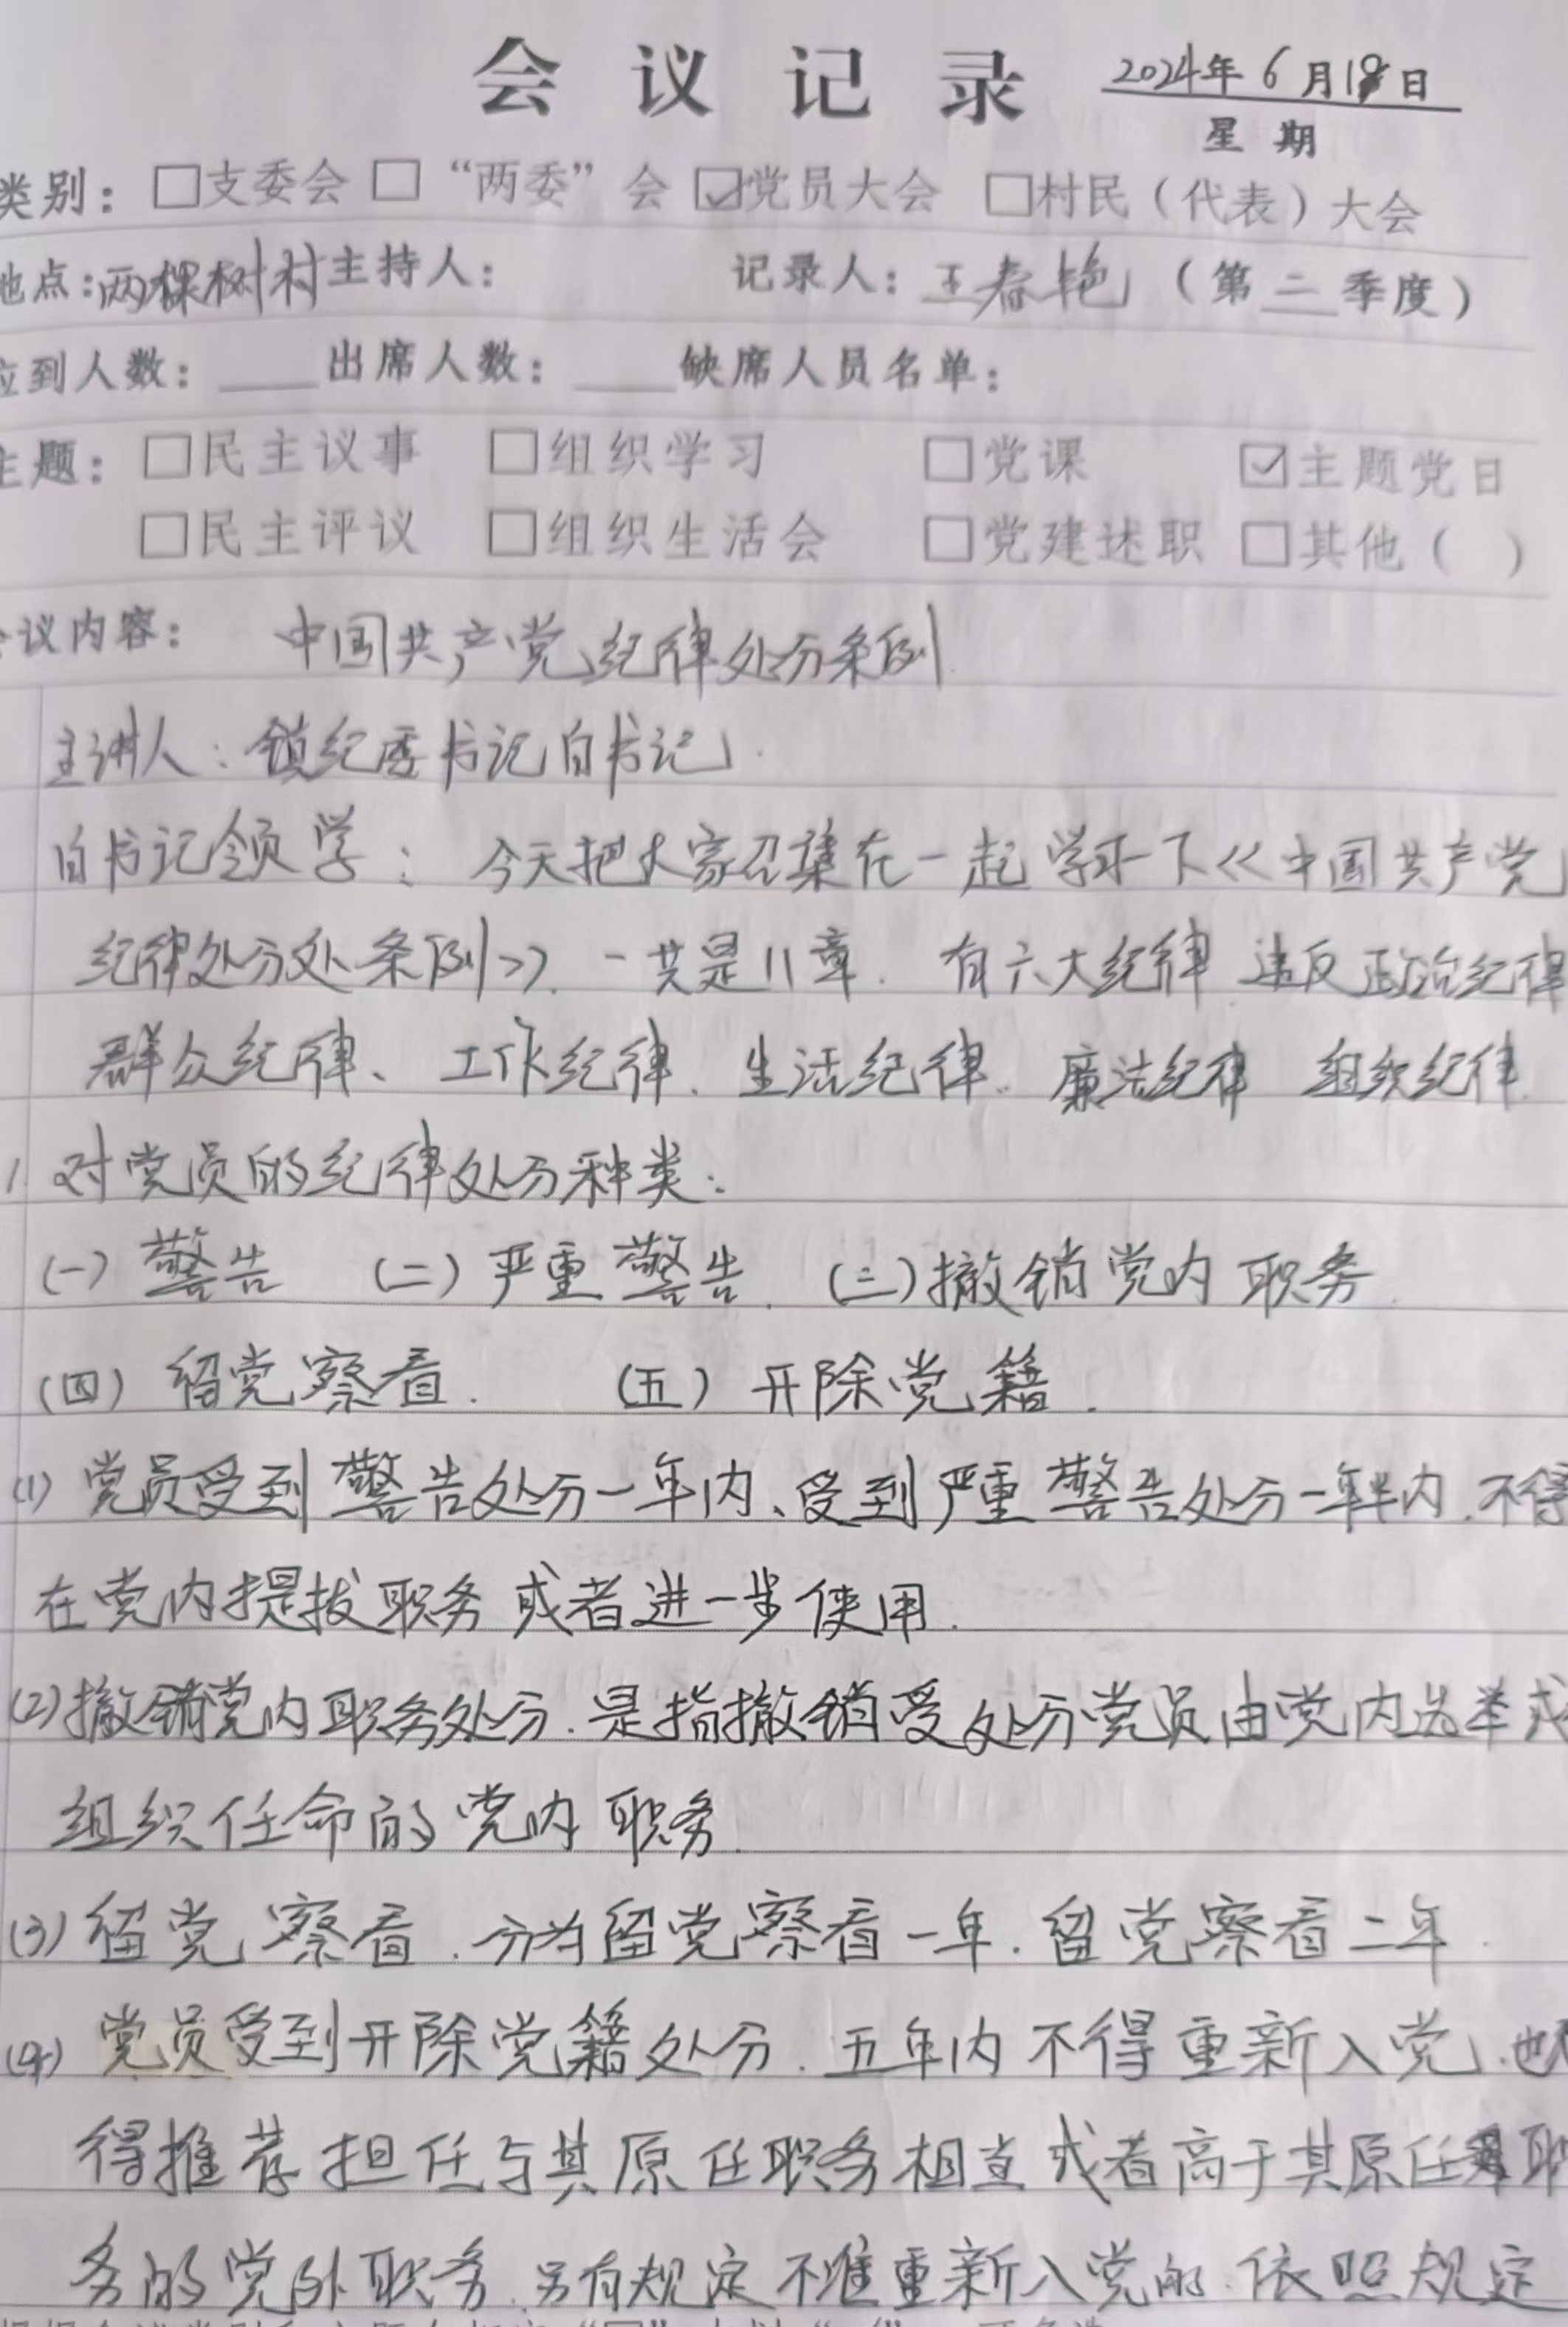 会议记录 2024年6月18日
星期
类别：□支委会 □“两委”会 ☑党员大会 □村民（代表）大会
地点：两棵树村 主持人： 记录人：王春艳（第二季度）
应到人数：____出席人数：____缺席人员名单：
主题：□民主议事 □组织学习 □党课 ☑主题党日
□民主评议 □组织生活会 □党建述职 □其他（ ）
会议内容：中国共产党纪律处分条例
主讲人：镇纪委书记白书记.
白书记领学：今天把大家召集在一起学习一下《中国共产党
纪律处分处条例》.一共是11章.有六大纪律 违反政治纪律
群众纪律、工作纪律.生活纪律.廉洁纪律 组织纪律.
1.对党员的纪律处分种类：
(一)警告 (二)严重警告.(三)撤销党内职务.
(四)留党察看. (五)开除党籍.
(1)党员受到警告处分一年内、受到严重警告处分一年半内.不得
在党内提拔职务或者进一步使用.
(2)撤销党内职务处分.是指撤销受处分党员由党内选举或
组织任命的党内职务.
(3)留党察看.分为留党察看一年.留党察看二年.
(4)党员受到开除党籍处分.五年内不得重新入党.也不
得推荐担任与其原任职务相当或者高于其原任职
务的党外职务.另有规定不准重新入党的.依照规定